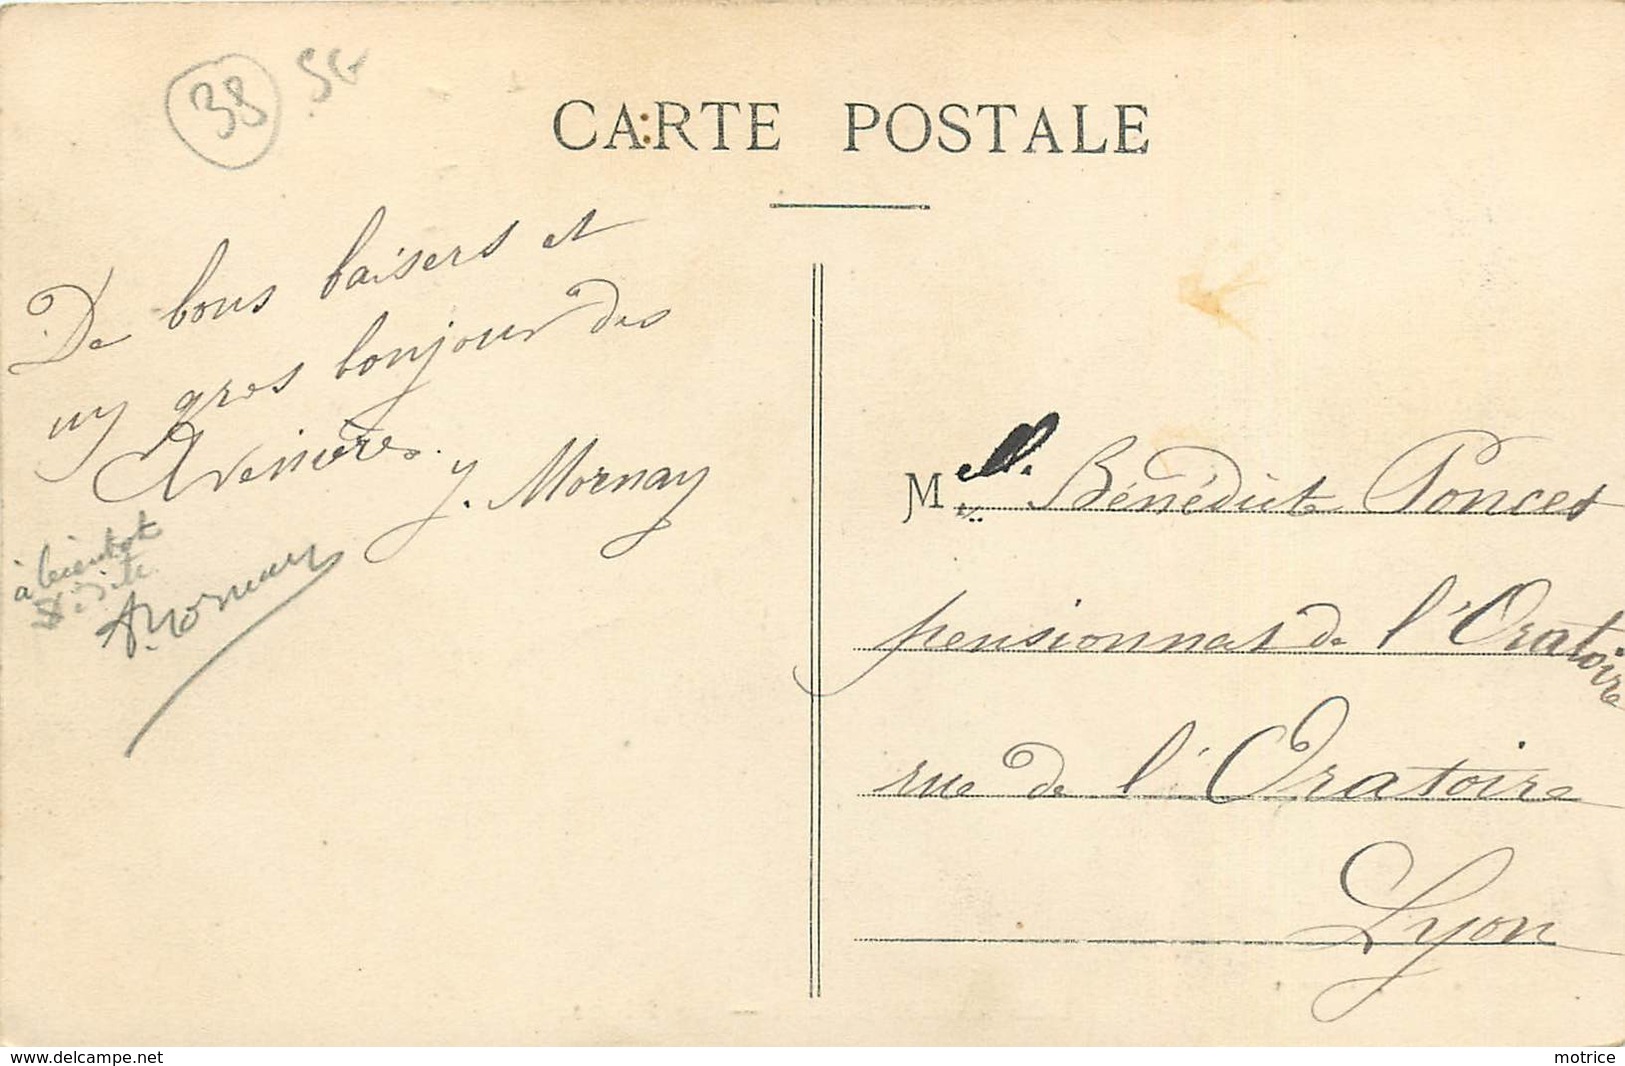 38 SG
CARTE POSTALE
De bons baisers et
un gros bonjour des
Avenières.
J. Mornay
à bientôt
A. Mornay
Mlle Bénédicte Poncet
pensionnat de l'Oratoire
rue de l'Oratoire
Lyon
www.delcampe.net
motrice